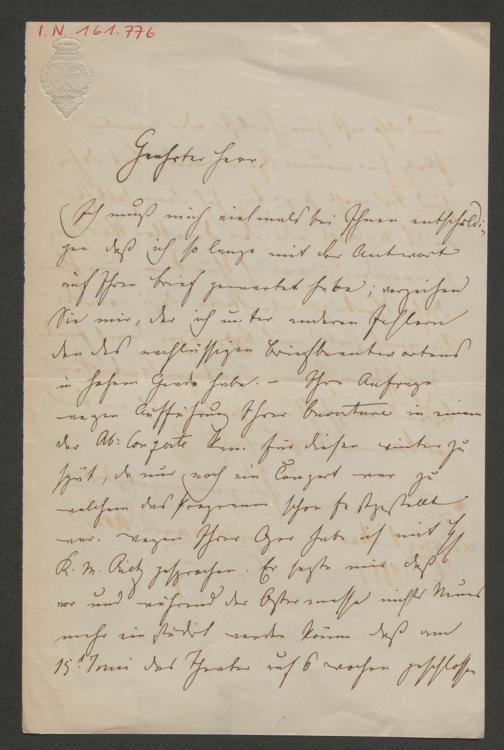 I.N. 161.776
Geehrter Herr,
Ich muß mich vielmals bei Ihnen entschuldi-
gen daß ich so lange mit der Antwort
auf Ihren Brief gewartet habe; verzeihen
Sie mir, der ich unter anderen Fehlern
den des nachlässigen Briefbeantwortens
in hohem Grade habe. – Ihre Anfrage
wegen Aufführung Ihrer Ouverture in einem
der Ab: Conzerte kam für diesen Winter zu
spät, da nur noch ein Conzert war zu
welchem das Programm schon festgestellt
war. Wegen Ihrer Oper habe ich mit H
K. M. Rietz gesprochen. Er sagte mir daß
vor und während der Ostermesse nichts Neues
mehr einstudirt werden könne daß am
15t Juni das Theater auf 6 Wochen geschlossen